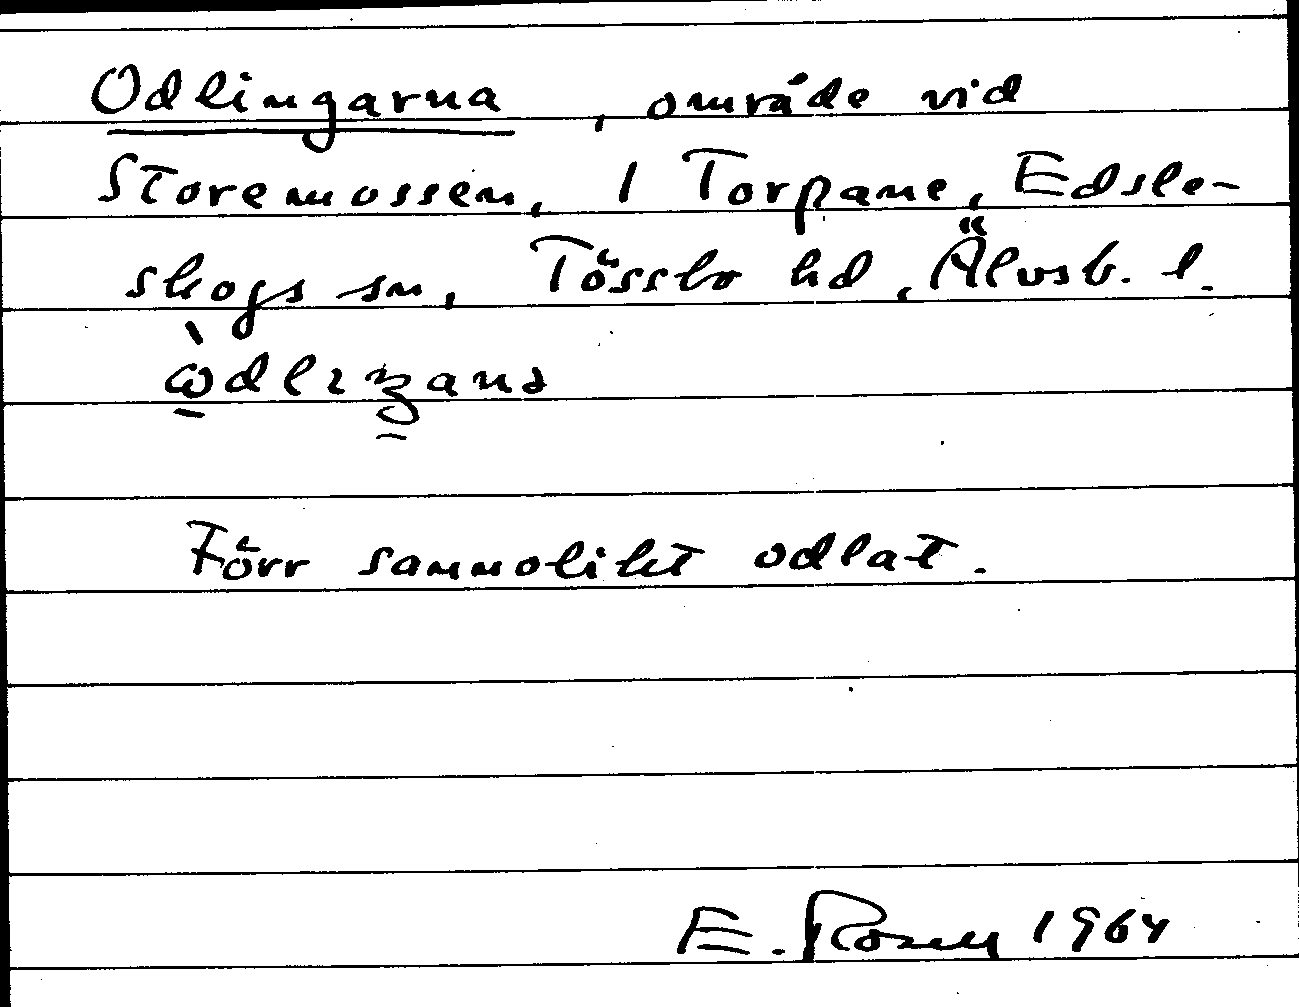 Odlingarna, område vid
Storemossen, 1 Torpane, Edsle-
skogs sn, Tössbo hd, Älvsb. l.
Förr sannolikt odlat.
E. Rosell 1964